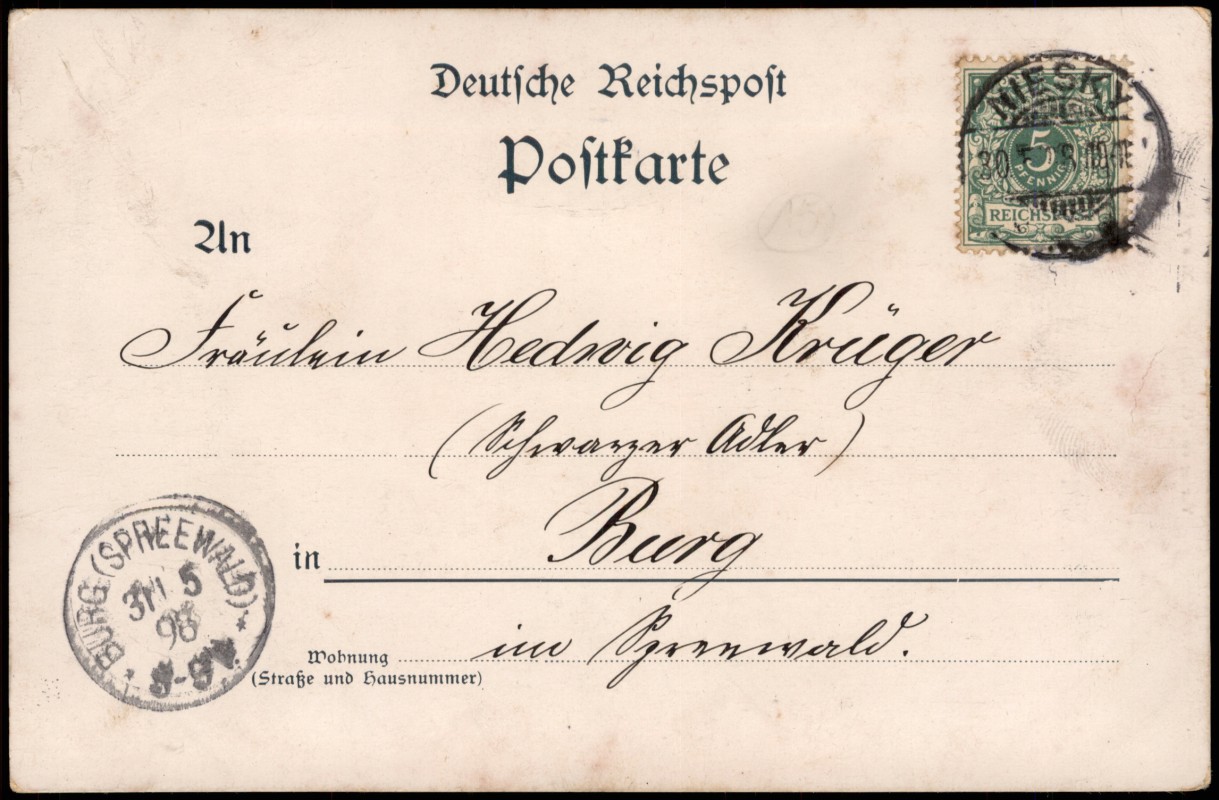 Deutsche Reichspost
Postkarte
NIESKY
30 5
5
PFENNIG
REICHSPOST
An
Fräulein Hedwig Krüger
(Schwarzer Adler)
in Burg
im Spreewald.
Wohnung
(Straße und Hausnummer)
BURG (SPREEWALD)
31 5
98
8-9V